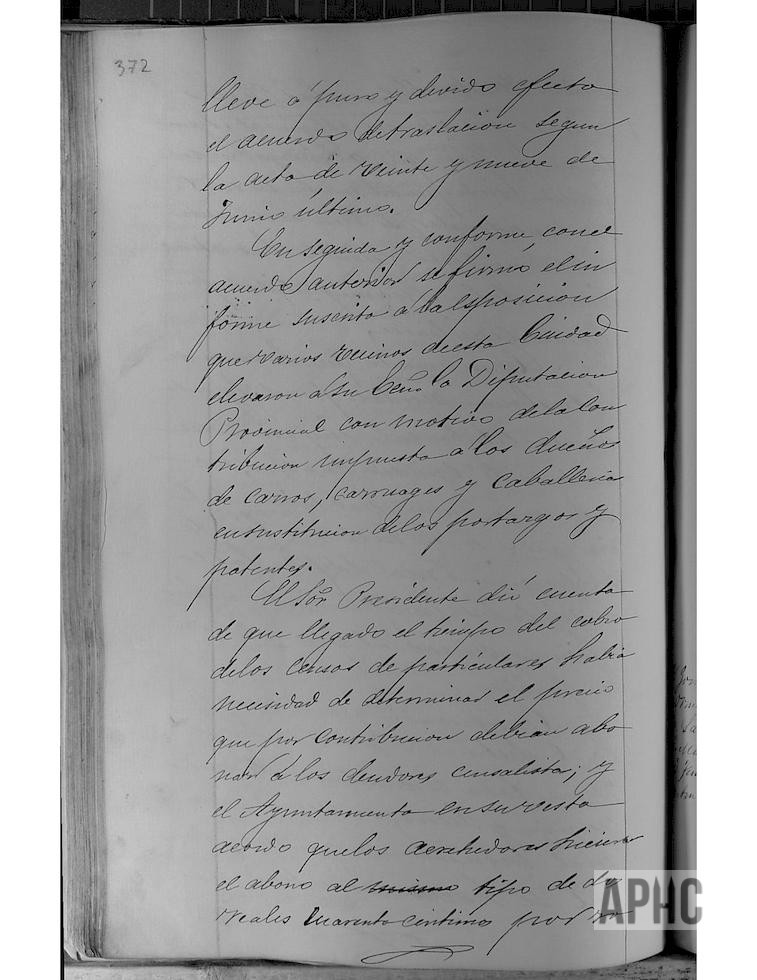 372
lleve á puro y devido efecto
el acuerdo de traslacion segun
la acta de veinte y nueve de
Junio último.
En seguida y conforme con el
acuerdo anterior se firmó el in
forme suscrito a la esposicion
que varios vecinos de esta Ciudad
elevaron a Su Exª la Diputacion
Provincial con motivo de la con
tribucion impuesta a los dueños
de carros, carruages y caballerias
en sustitucion de los portazgos y
patentes.
El Sor. Presidente dió cuenta
de que llegado el tiempo del cobro
de los censos de particulares habia
necesidad de determinar el precio
que por contribucion debian abo
nar á los deudores censalista; y
el Ayuntamiento en su vista
acordo que los acrehedores hicieran
el abono al mismo tipo de dos
reales cuarenta centimos por
APHC